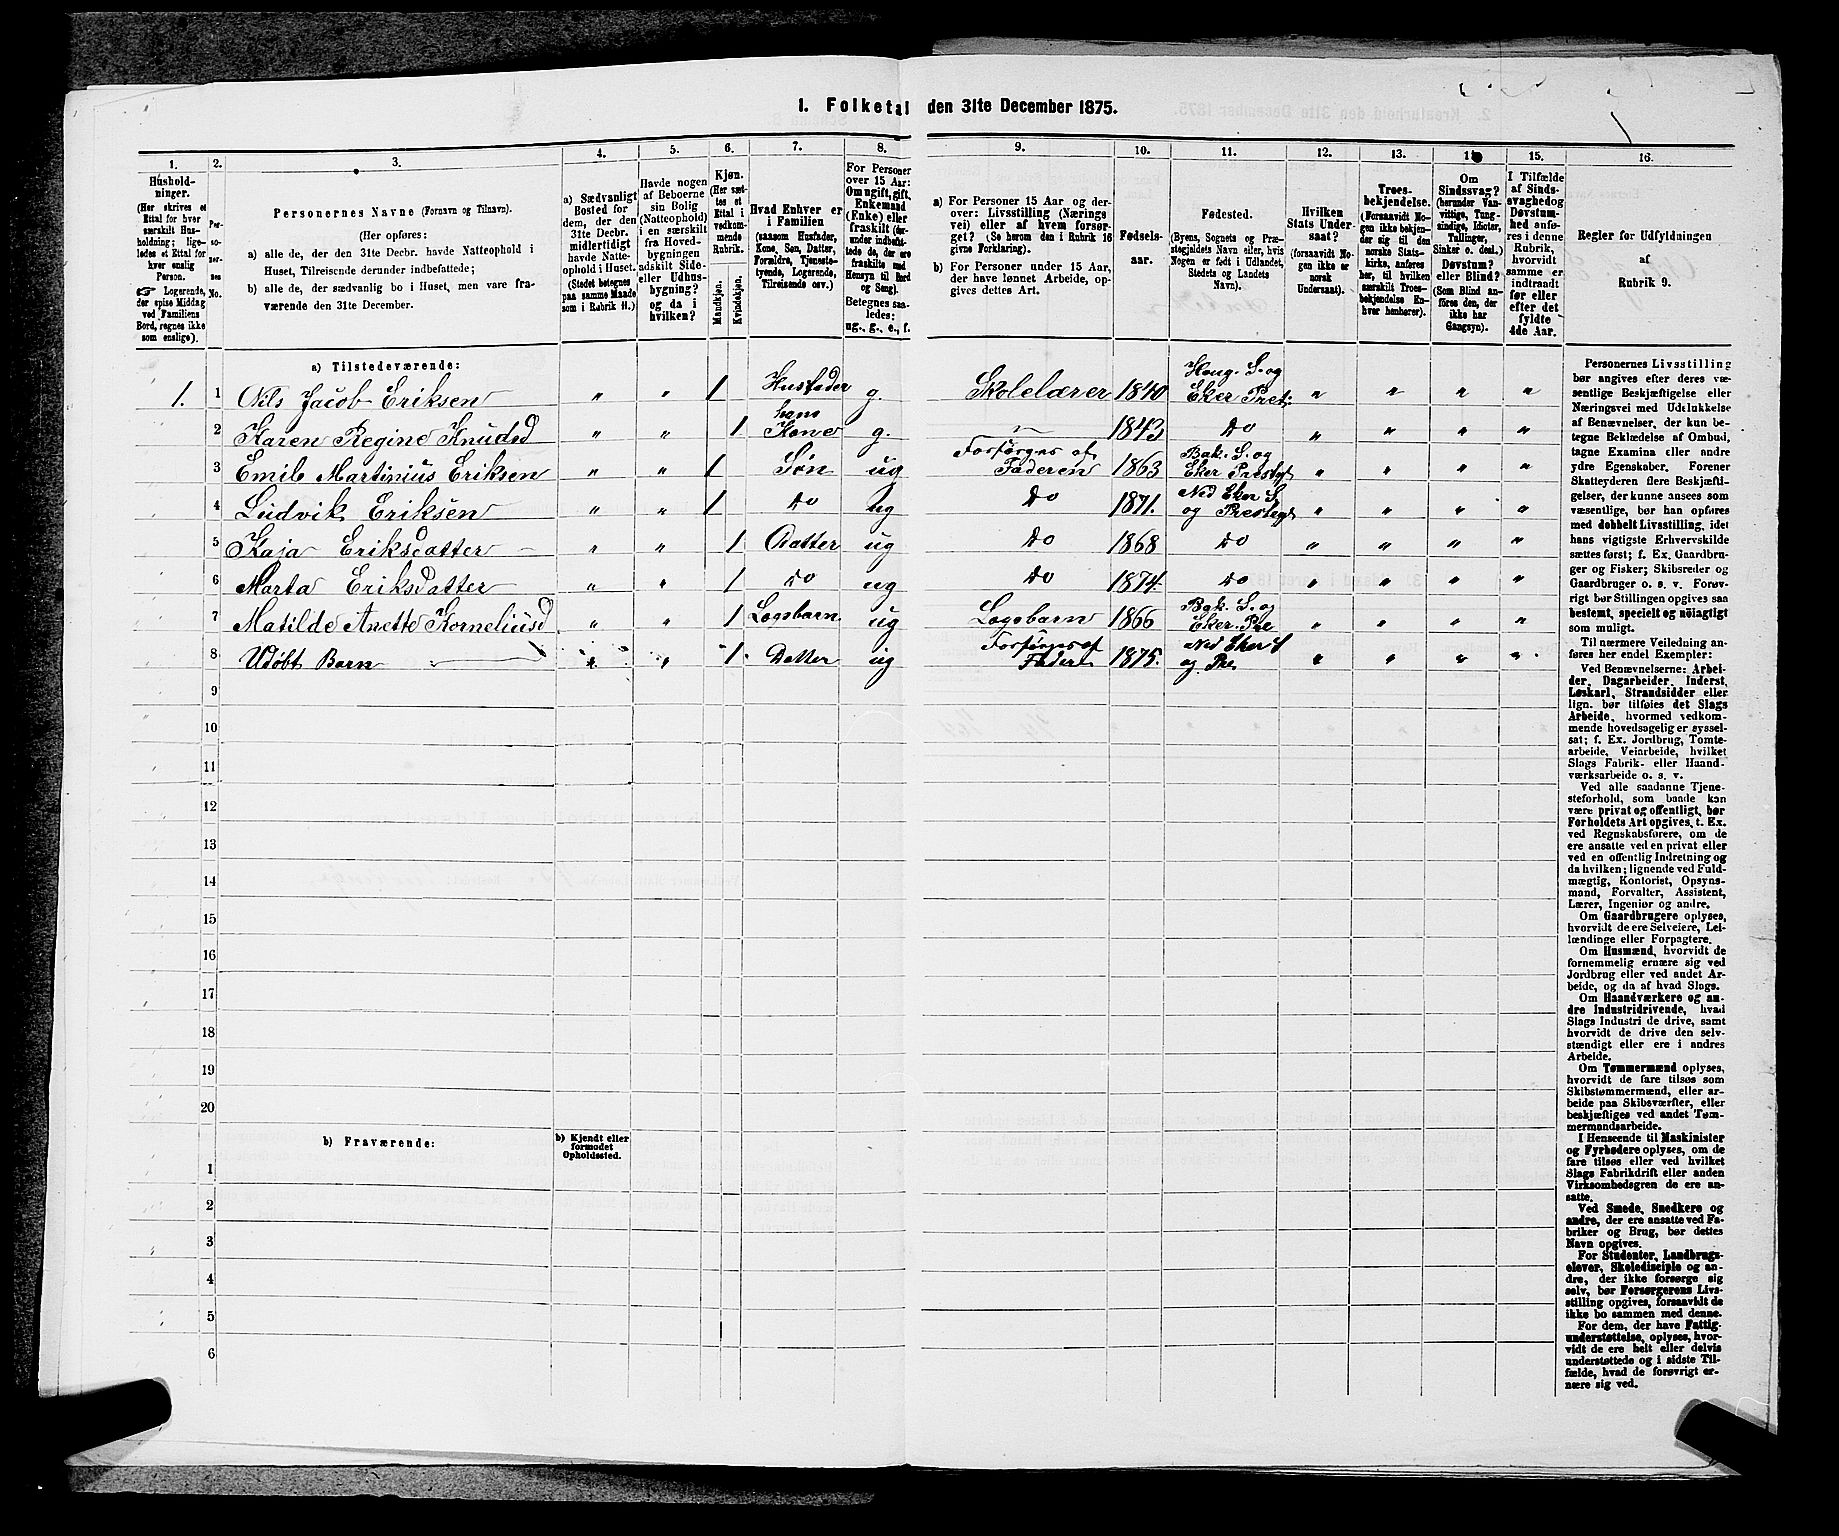 1. Folketal den 31te December 1875.
1. 2. 3. 4. 5. 6. 7. 8. 9. 10. 11. 12. 13. 15. 16.
Hushold-
ninger.
(Her skrives et
Ettal for hver
særskilt Hus-
holdning; lige-
ledes et Ettal for
hver enslig
Person.
☞ Logerende,
der spise Middag
ved Familiens
Bord, regnes ikke
som enslige).
Per-
so-
ner-
nes
No.
Personernes Navne (Fornavn og Tilnavn).
(Her opføres:
a) alle de, der den 31te Decbr. havde Natteophold i
Huset, Tilreisende derunder indbefattede;
b) alle de, der sædvanlig bo i Huset, men vare fra-
værende den 31te December.
a) Sædvanligt
Bosted for
dem, der den
31te Decbr.
midlertidigt
havde Natte-
ophold i Huset.
(Stedet betegnes
paa samme Maade
som i Rubrik 11.)
Havde nogen
af Beboerne
sin Bolig
(Natteophold)
i en særskilt
fra Hoved-
bygningen
adskilt Side-
eller Udhus-
bygning?
og da i
hvilken?
Kjøn.
(Her sæt-
tes et
Ettal i
vedkom-
mende
Rubrik.
Mandkjøn.
Kvindekjøn.
Hvad Enhver er
i Familien
(saasom Husfader,
Kone, Søn, Datter,
Forældre, Tjeneste-
tyende, Logerende,
Tilreisende osv.)
For Personer
over 15 Aar:
Om ugift, gift,
Enkemand
(Enke) eller
fraskilt (der-
under indbefat-
tede de, der ere
fraskilte med
Hensyn til Bord
og Seng).
Betegnes saa-
ledes:
ug., g., e., f.
a) For Personer 15 Aar og der-
over: Livsstilling (Nærings
vei) eller af hvem forsør-
get? (Se herom den i Rubrik 16
givne Forklaring).
b) For Personer under 15 Aar,
der have lønnet Arbeide, op-
gives dettes Art.
Fødsels-
aar.
Fødested.
(Byens, Sognets og Præ-
stegjeldets Navn eller, hvis
Nogen er født i Udlandet,
Stedets og Landets
Navn).
Hvilken
Stats Under-
saat?
(forsaavidt No-
gen ikke er
norsk
Undersaat).
Troes-
bekjendelse.
(Forsaavidt No-
gen ikke bekjen-
der sig til den
norske Stats-
kirke, anføres
her, til hvilken
særskilt Troes-
bekjendelse En-
hver henhører).
Om
Sindssvag?
(herunder Van-
vittige, Tung-
sindige, Idioter,
Tullinger,
Sinker o. desl.)
Døvstum?
eller Blind?
(Som Blind an-
føres den, der
ikke har
Gangsyn).
I Tilfælde
af Sinds-
svaghed og
Døvstum-
hed anfø-
res i denne
Rubrik,
hvorvidt
samme er
indtraadt
før eller
efter det
fyldte
4de Aar.
Regler for Udfyldningen
af
Rubrik 9.
a) Tilstedeværende:
1. 1 Nils Jacob Eriksen " " 1 Husfader g. Skolelærer 1840 Houg. S. og Eker Prst: " " " "
2 Karen Regine Knudsd " " 1 hans Kone g. 1843 Do " " " "
3 Emil Martinius Eriksen " " 1 Søn ug Forsørges af Faderen 1863 Bak. S. og Eker Prestgt " " " "
4 Ludvik Eriksen " " 1 Do ug Do 1871. Ned Eker S. og Prestegt " " " "
5 Kaja Eriksdatter " " 1 Datter ug Do 1868 Do " " " "
6 Marta Eriksdatter " " 1 Do ug Do 1874. Do " " " "
7 Matilde Anette Korneliusd " " 1 Logsbarn ug Logsbarn 1866 Bak. S. og Eker. Pre " " " "
8 Udøbt Barn " " 1 Datter ug Forsørges af Faderen 1875. Ned Eker S og Pre " " " "
9
10
11
12
13
14
15
16
17
18
19
20
b) Fraværende:
b) Kjendt eller
formodet
Opholdssted.
1
2
3
4
5
6
Personernes Livsstilling
bør angives efter deres væ-
sentlige Beskjæftigelse eller
Næringsvei med Udelukkelse
af Benævnelser, der kun be-
tegne Beklædelse af Ombud,
tagne Examina eller andre
ydre Egenskaber. Forener
Skatteyderen flere Beskjæfti-
gelser, der kunne ansees som
væsentlige, bør han opføres
med dobbelt Livsstilling, idet
hans vigtigste Erhvervskilde
sættes først; f. Ex. Gaardbru-
ger og Fisker; Skibsreder og
Gaardbruger o. s. v. Forøv-
rigt bør Stillingen opgives saa
bestemt, specielt og nøiagtigt
som muligt.
Til nærmere Veiledning an-
føres her endel Exempler:
Ved Benævnelserne: Arbei-
der, Dagarbeider, Inderst,
Løskarl, Strandsidder eller
lign. bør tilføies det Slags
Arbeide, hvormed vedkom-
mende hovedsagelig er syssel-
sat; f. Ex. Jordbrug, Tomte-
arbeide, Veiarbeide, hvilket
Slags Fabrik- eller Haand-
værksarbeide o. s. v.
Ved alle saadanne Tjene-
steforhold, som baade kan
være privat og offentligt, bør
Forholdets Art opgives, t. Ex.
ved Regnskabsførere, om de
ere ansatte ved en privat eller
ved en offentlig Indretning og
da hvilken; lignende ved Fuld-
mægtig, Kontorist, Opsyns-
mand, Forvalter, Assistent,
Lærer, Ingeniør og andre.
Om Gaardbrugere oplyses,
hvorvidt de ere Selveiere, Lei-
lændinge eller Forpagtere.
Om Husmænd, hvorvidt de
fornemmelig ernære sig ved
Jordbrug eller ved andet Ar-
beide, og da af hvad Slags.
Om Haandværkere og an-
dre Industridrivende, hvad
Slags Industri de drive, samt
hvorvidt de drive den selv-
stændigt eller ere i andres
Arbeide.
Om Tømmermænd oplyses,
hvorvidt de fare tilsøs som
Skibstømmermænd, eller ar-
beide paa Skibsværfter, eller
beskjæftiges ved andet Tøm-
mermandsarbeide.
I Henseende til Maskinister
og Fyrbødere oplyses, om de
fare tilsøs eller ved hvilket
Slags Fabrikdrift eller anden
Virksomhedsgren de ere an-
satte.
Ved Smede, Snedkere og
andre, der ere ansatte ved Fa-
briker og Brug, bør dettes
Navn opgives.
For Studenter, Landbrugs-
elever, Skoledisciple og an-
dre, der ikke forsørge sig
selv, bør Forsørgerens Livs-
stilling opgives, forsaavidt de
ikke bo sammen med denne.
For dem, der have Fattig-
understøttelse, oplyses, hvor-
vidt de ere helt eller delvis
understøttede og i sidste Til-
fælde, hvad de forøvrigt er-
nære sig ved.